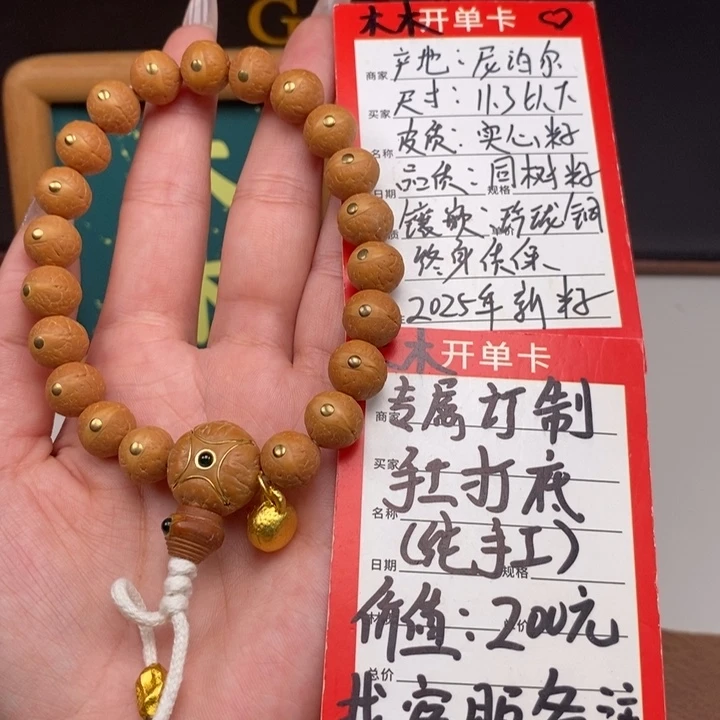 木木开单卡
商家 产地：尼泊尔
买家 尺寸：11.3以下
名称 皮质：实心籽
日期 品质：同树籽 规格
质 镶嵌：玲珑/铜 单价
终身质保
2025年新籽
木开单卡
商家 专属订制
买家 手工打底
名称 (纯手工)
日期 规格
价值：200元
总价
找客服备注